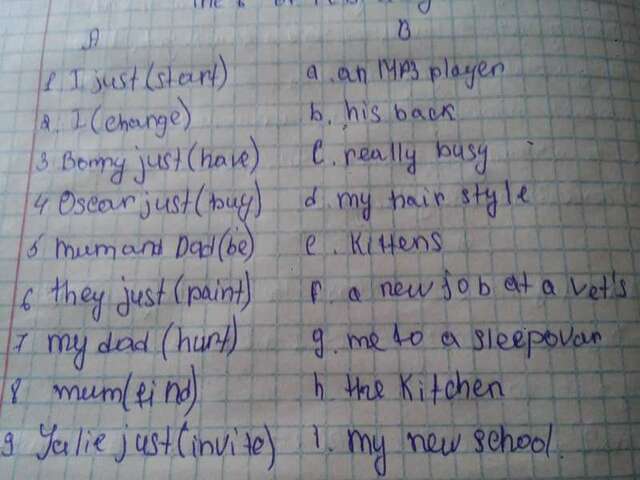 A B
1 I just (start) a. an MP3 player
2. I (change) b. his back
3 Bonny just (have) c. really busy
4 Oscar just (buy) d. my hair style
5 mum and Dad (be) e. Kittens
6 they just (paint) f. a new job at a vet's
7 my dad (hurt) g. me to a sleepovar
8 mum (find) h. the Kitchen
9 Julie just (invite) i. my new school.